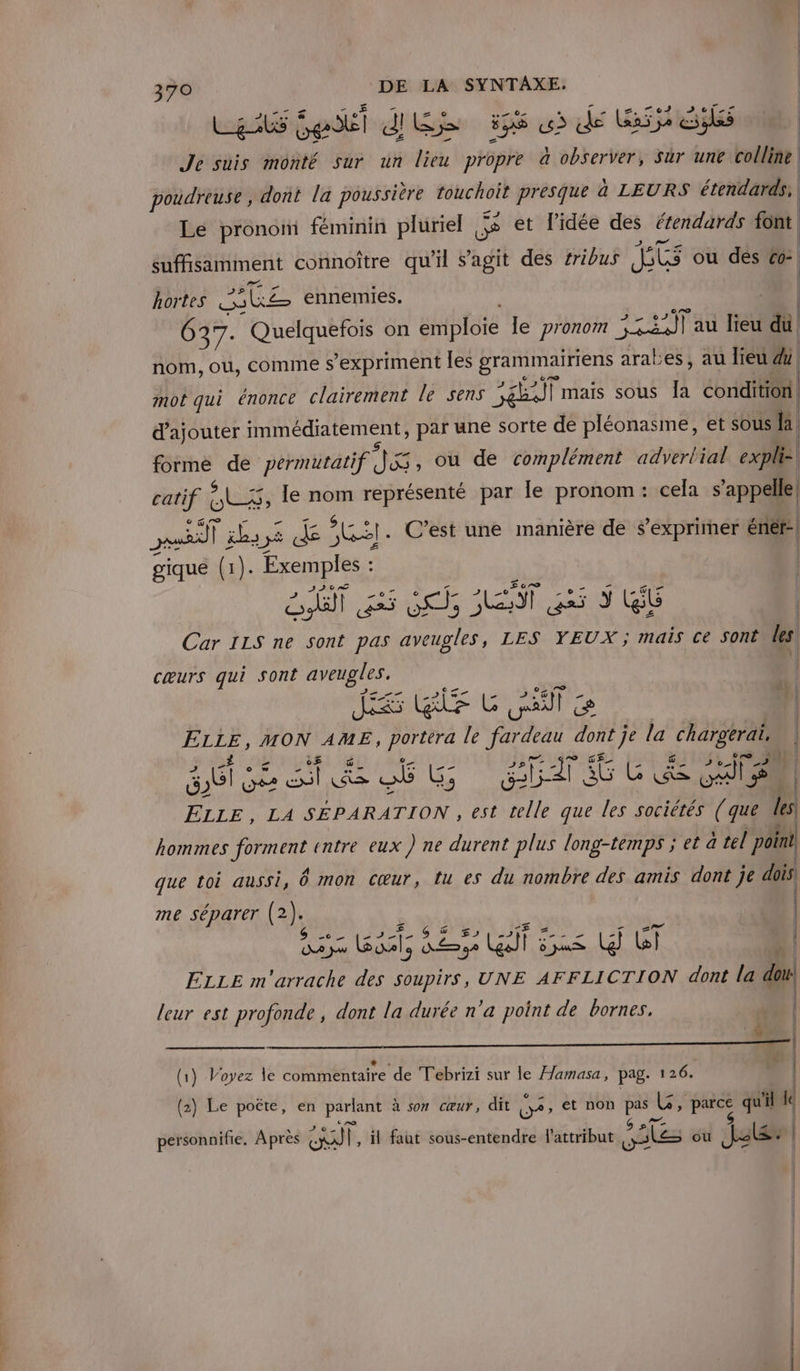 370 DE LA SYNTAXE.
فَعَلَوْتُ مُرْتَقَبًا عَلَى ذِى هَبْوَةٍ حَرَجًا إِلَى أَعْلَامِهِنَّ قَتَامُهَا
Je suis monté sur un lieu propre à observer, sur une colline
poudreuse, dont la poussière touchoit presque à LEURS étendards,
Le pronom féminin pluriel هُنَّ et l'idée des étendards font
suffisamment connoître qu'il s'agit des tribus قَبَائِل ou des co-
hortes كَتَائِب ennemies.
637. Quelquefois on emploie le pronom اَلْمُضْمَر au lieu du
nom, ou, comme s'expriment les grammairiens arabes, au lieu du
mot qui énonce clairement le sens اَلْمُظْهَر mais sous la condition
d'ajouter immédiatement, par une sorte de pléonasme, et sous la
forme de permutatif بَدَلٌ, ou de complément adverbial expli-
catif بَيَانٌ, le nom représenté par le pronom : cela s'appelle
إِضْمَارٌ عَلَى شَرِيطَةِ ٱلتَّفْسِيرِ. C'est une manière de s'exprimer éner-
gique (1). Exemples :
فَإِنَّهَا لَا تَعْمَى ٱلْأَبْصَارُ وَلَكِنْ تَعْمَى ٱلْقُلُوبُ
Car ILS ne sont pas aveugles, LES YEUX ; mais ce sont les
cœurs qui sont aveugles.
هِىَ ٱلنَّفْسُ مَا حَمَّلْتَهَا تَتَحَمَّلُ
ELLE, MON AME, portera le fardeau dont je la chargerai.
هُوَ ٱلْبَيْنُ حَتَّى مَا تَأَنَّى ٱلْحَزَائِقُ وَيَا قَلْبِ حَتَّى أَنْتَ مِمَّنْ أُفَارِقُ
ELLE, LA SÉPARATION, est telle que les sociétés (que les
hommes forment entre eux) ne durent plus long-temps ; et à tel point
que toi aussi, ô mon cœur, tu es du nombre des amis dont je dois
me séparer (2).
ELLE m'arrache des soupirs, UNE AFFLICTION dont la dou-
leur est profonde, dont la durée n'a point de bornes.
(1) Voyez le commentaire de Tebrizi sur le Hamasa, pag. 126.
(2) Le poëte, en parlant à son cœur, dit مَنْ, et non pas مَا, parce qu'il le
personnifie. Après اَلْبَيْنُ, il faut sous-entendre l'attribut كَائِنٌ ou حَاصِلٌ.